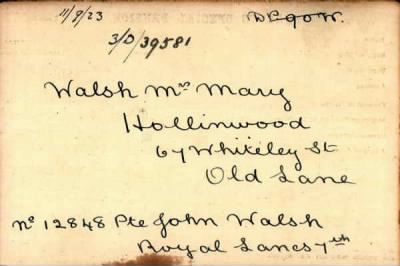 11/9/23
3/D/39581
Walsh Mrs Mary
Hollinwood
67 Whiteley St
Old Lane
No 12848 Pte John Walsh
Royal Lancs 7th